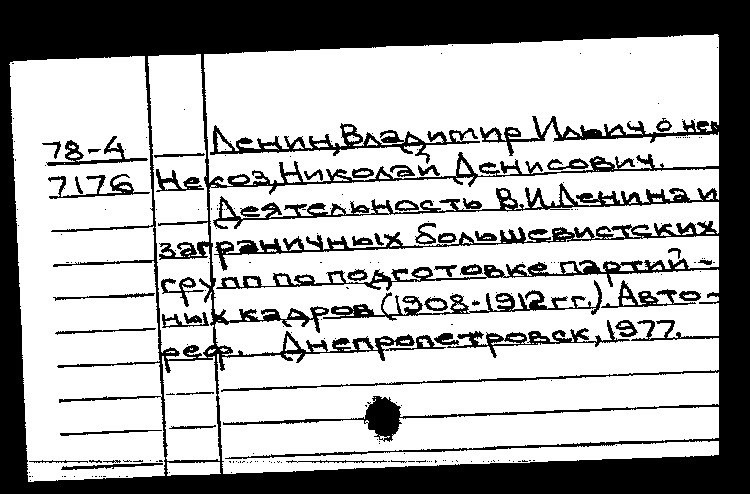 78-4 Ленин, Владимир Ильич, о нем
7176 Некоз, Николай Денисович.
Деятельность В.И.Ленина и
заграничных большевистских
групп по подготовке партий-
ных кадров (1908-1912гг.). Авто-
реф. Днепропетровск, 1977.